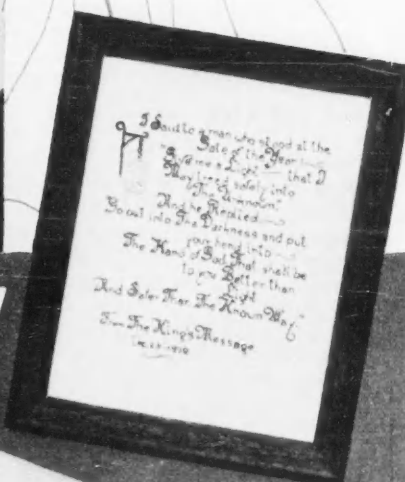 I Said to a man who stood at the
Gate of the Year
"Give me a Light — that I
May tread safely into
The Unknown"
And he Replied
Go out into The Darkness and put
your hand into
The Hand of God That shall be
to you Better than
Light
And Safer Than The Known Way."
From The King's Message